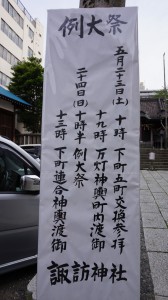 例大祭
五月二十三日(土)
十時 下町五町交換参拝
十九時 万灯神輿町内渡御
二十四日(日)
十時半 例大祭
十三時 下町連合神輿渡御
諏訪神社